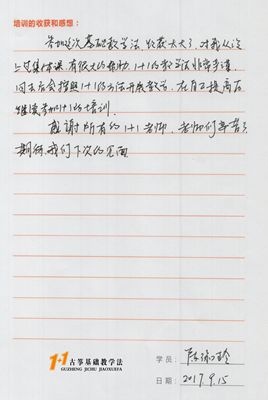 培训的收获和感想:
参加这次基础教学法,收获太大了,对我从没
上过集体课,有很大的帮助,1+1的教学法非常手
回去后会按照1+1的方法开展教学,在自己提高后
继续参加1+1的培训.
感谢所有的1+1老师,老师们辛苦了
期待我们下次的见面
1+1古筝基础教学法
GUZHENG JICHU JIAOXUEFA
学员:
日期:2017.9.15